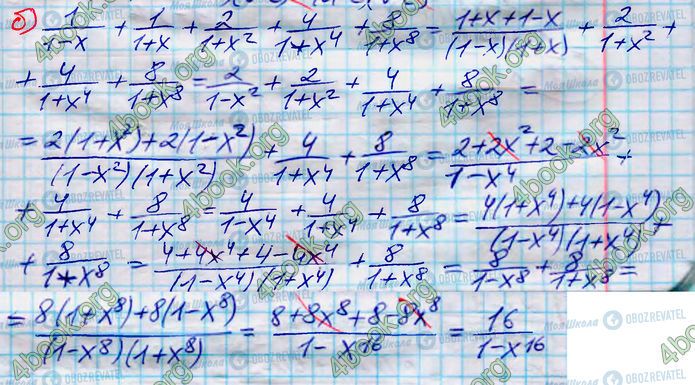 б) 1/(1-x) + 1/(1+x) + 2/(1+x²) + 4/(1+x⁴) + 8/(1+x⁸) = (1+x+1-x)/((1-x)(1+x)) + 2/(1+x²) +
+ 4/(1+x⁴) + 8/(1+x⁸) = 2/(1-x²) + 2/(1+x²) + 4/(1+x⁴) + 8/(1+x⁸) =
= (2(1+x²)+2(1-x²))/((1-x²)(1+x²)) + 4/(1+x⁴) + 8/(1+x⁸) = (2+2x²+2-2x²)/(1-x⁴) +
+ 4/(1+x⁴) + 8/(1+x⁸) = 4/(1-x⁴) + 4/(1+x⁴) + 8/(1+x⁸) = (4(1+x⁴)+4(1-x⁴))/((1-x⁴)(1+x⁴)) +
+ 8/(1+x⁸) = (4+4x⁴+4-4x⁴)/((1-x⁴)(1+x⁴)) + 8/(1+x⁸) = 8/(1-x⁸) + 8/(1+x⁸) =
= (8(1+x⁸)+8(1-x⁸))/((1-x⁸)(1+x⁸)) = (8+8x⁸+8-8x⁸)/(1-x¹⁶) = 16/(1-x¹⁶)
4book.org
МояШкола OBOZREVATEL